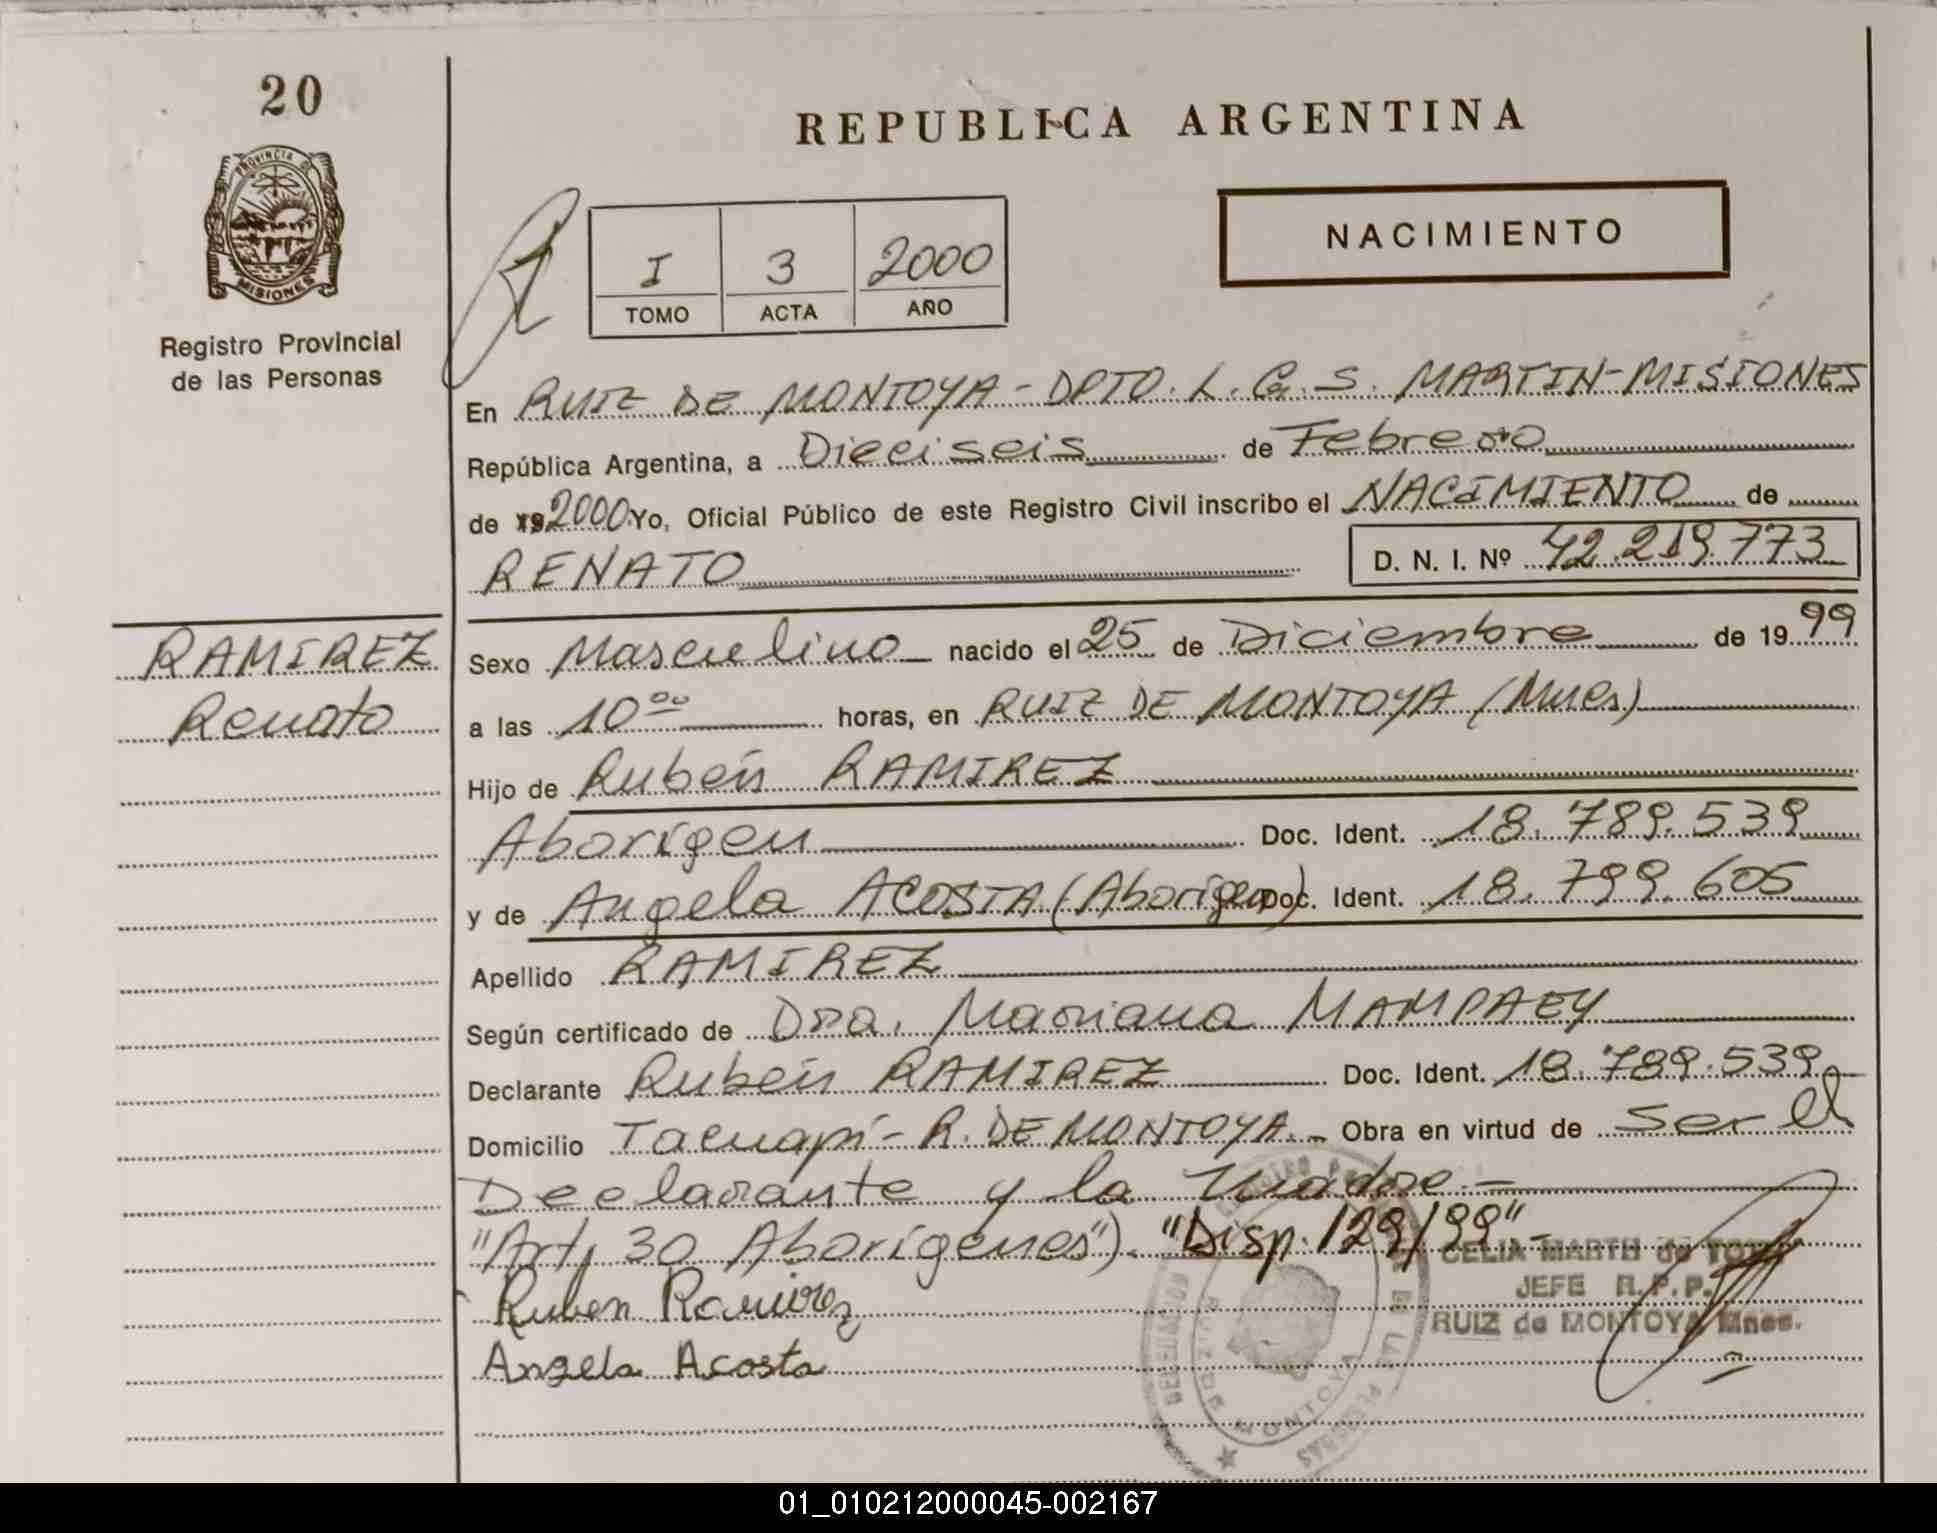 20
PROVINCIA DE
MISIONES
Registro Provincial
de las Personas
RAMIREZ
Renato
REPUBLICA ARGENTINA
NACIMIENTO
I 3 2000
TOMO ACTA AÑO
En RUIZ DE MONTOYA - DPTO. L. G. S. MARTIN - MISIONES
República Argentina, a Dieciseis de Febrero
de 19 2000 Yo, Oficial Público de este Registro Civil inscribo el NACIMIENTO de
RENATO D. N. I. Nº 42.219.773
Sexo Masculino nacido el 25 de Diciembre de 19 99
a las 10 00 horas, en RUIZ DE MONTOYA (Mnes)
Hijo de Rubén RAMIREZ
Aborigen Doc. Ident. 18.789.539
y de Angela ACOSTA (Aborigen) Doc. Ident. 18.799.605
Apellido RAMIREZ
Según certificado de Dra. Mariana MAMPAEY
Declarante Rubén RAMIREZ Doc. Ident. 18.789.539
Domicilio Tacuapí - R. DE MONTOYA.- Obra en virtud de ser el
Declarante y la madre.-
"Art. 30 Aborígenes"). "Disp. 129/99"-
Ruben Ramirez
Angela Acosta
CELIA MARTH de
JEFE R.P.P.
RUIZ de MONTOYA Mnes.
DELEGACION
RUIZ DE MONTOYA
DE LAS PERSONAS
01_010212000045-002167